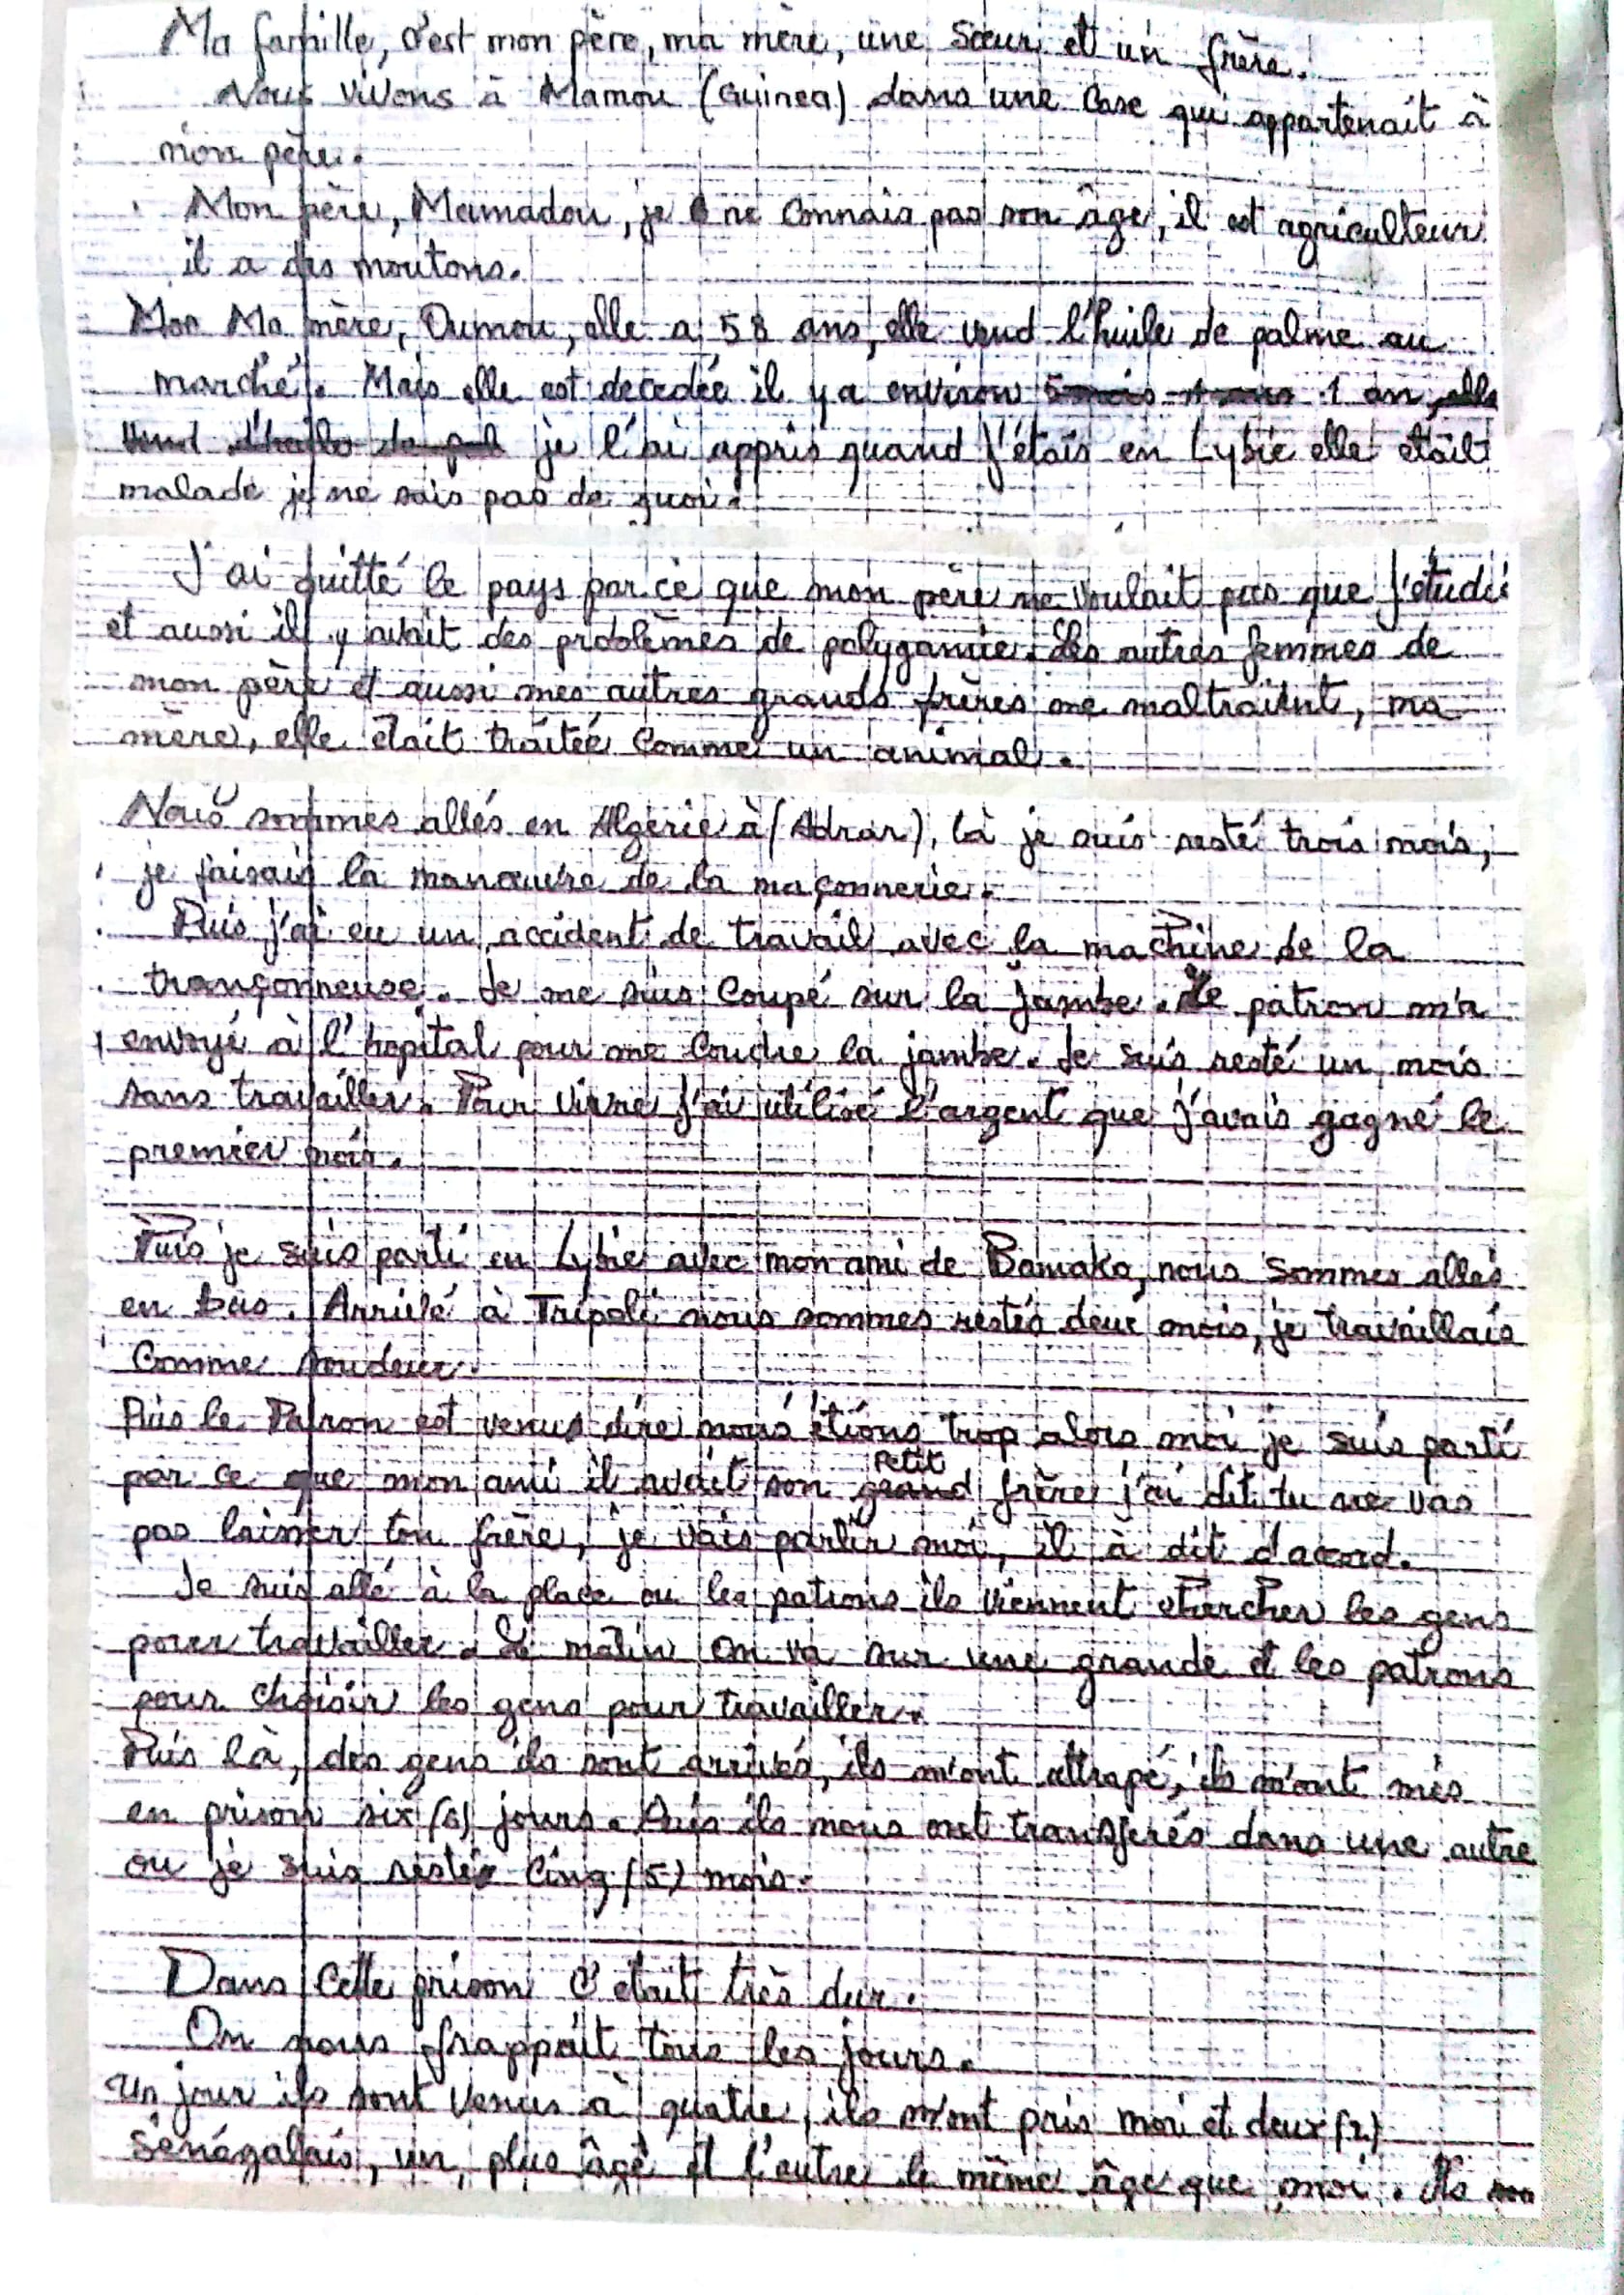 Ma famille, c'est mon père, ma mère, une Sœur et un frère.
Nous vivons à Mamou (Guinea) dans une Case qui appartenait à
mon père.
Mon père, Mamadou, je ne Connais pas son âge, il est agriculteur
il a des moutons.
Mon Ma mère, Oumou, elle a 58 ans, elle vend l'huile de palme au
marché. Mais elle est decedée il y a environ 5 mois 1 an, elle
vend d'huile de pal je l'ai appris quand j'étais en Lybie elle etait
malade je ne sais pas de quoi.
J'ai quitté le pays par ce que mon père ne voulait pas que j'étudie
et aussi il y avait des problèmes de polygamie. Les autres femmes de
mon père et aussi mes autres grands frères me maltraitent, ma
mère, elle était traitée Comme un animal.
Nous sommes allés en Algerie à (Adrar), là je suis resté trois mois,
je faisais la manœuvre de la maçonnerie.
Puis j'ai eu un accident de travail avec la machine de la
trançonneuse. Je me suis Coupé sur la jambe. Le patron m'a
envoyé à l'hopital pour me Coudre la jambe. Je suis resté un mois
sans travailler. Pour vivre j'ai utilisé l'argent que j'avais gagné le
premier mois.
Puis je suis parti en Lybie avec mon ami de Bamako, nous Sommes allés
en bus. Arrivé à Tripoli nous sommes restés deux mois, je travaillais
Comme soudeur.
Puis le Patron est venus dire nous étions trop alors moi je suis parti
par ce que mon ami il avait son grand petit frère j'ai dit tu ne vas
pas laisser ton frère, je vais partir moi, il à dit d'accord.
Je suis allé à la place ou les patrons ils viennent chercher les gens
pour travailler. Le matin on va sur une grande et les patrons
pour choisir les gens pour travailler.
Puis là, des gens ils sont arrivés, ils m'ont attrapé, ils m'ont mis
en prison six (6) jours. Puis ils nous ont transferés dans une autre
ou je suis resté Cinq (5) mois.
Dans Cette prison C'etait très dur.
On nous frappait tous les jours.
Un jour ils sont Venus à quatre, ils m'ont pris moi et deux (2)
Sénégalais, un plus âgé et l'autre le même âge que moi. Ils